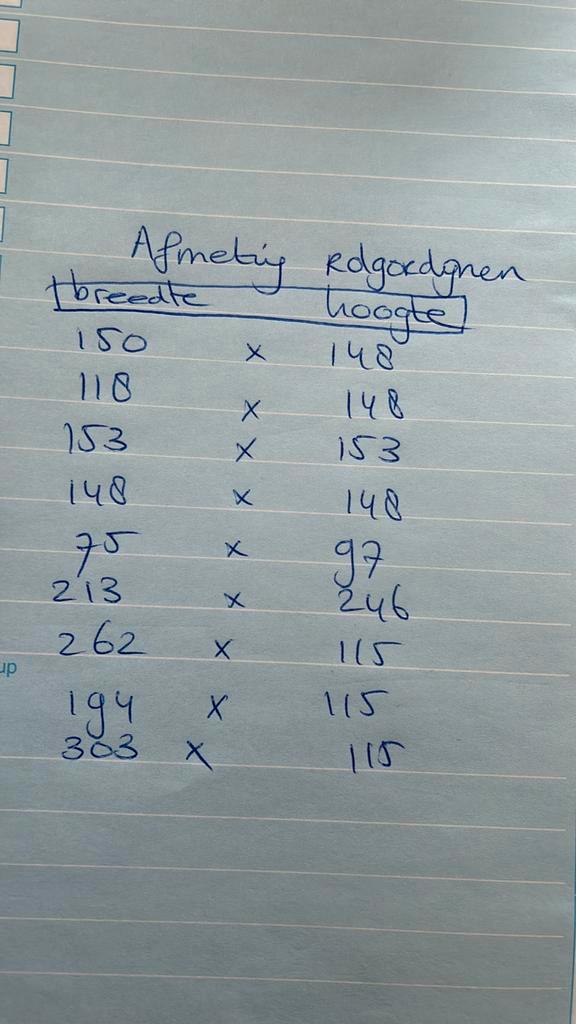 Afmeting rolgordijnen
breedte hoogte
150 x 148
118 x 148
153 x 153
148 x 148
75 x 97
213 x 246
262 x 115
up
194 x 115
303 x 115